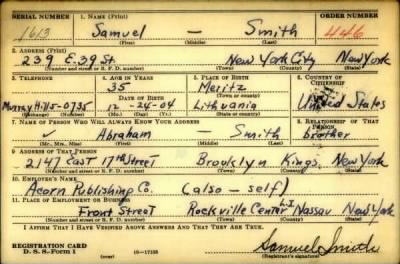 SERIAL NUMBER 1. NAME (Print) ORDER NUMBER
1613 Samuel — Smith 446
(First) (Middle) (Last)
2. ADDRESS (Print)
239 E. 39 St. New York City New York
(Number and street or R. F. D. number) (Town) (County) (State)
3. TELEPHONE 4. AGE IN YEARS 5. PLACE OF BIRTH 6. COUNTRY OF CITIZENSHIP
35 Meritz
Murray Hill 5-0735 DATE OF BIRTH 12-24-04 Lithuania United States
(Exchange) (Number) (Mo.) (Day) (Yr.) (State or country)
7. NAME OF PERSON WHO WILL ALWAYS KNOW YOUR ADDRESS 8. RELATIONSHIP OF THAT PERSON
Abraham — Smith brother
(Mr., Mrs., Miss) (First) (Middle) (Last)
9. ADDRESS OF THAT PERSON
2147 East 17th Street Brooklyn Kings. New York
(Number and street or R. F. D. number) (Town) (County) (State)
10. EMPLOYER'S NAME
Acorn Publishing Co. (also - self)
11. PLACE OF EMPLOYMENT OR BUSINESS
Front Street Rockville Center L.I. Nassau New York
(Number and street or R. F. D. number) (Town) (County) (State)
I AFFIRM THAT I HAVE VERIFIED ABOVE ANSWERS AND THAT THEY ARE TRUE.
REGISTRATION CARD
D. S. S. Form 1 (over) 16—17105 Samuel Smith
(Registrant's signature)